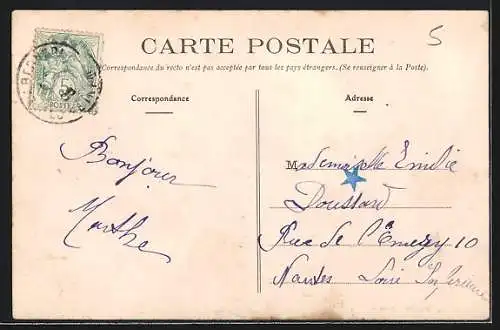 5
CARTE POSTALE
(Correspondance du recto n'est pas acceptée par tous les pays étrangers. (Se renseigner à la Poste).
Correspondance
Adresse
Bonjour
Marthe
Mademoiselle Emilie
Doussard
Rue de l'Emery 10
Nantes Loire Inférieure